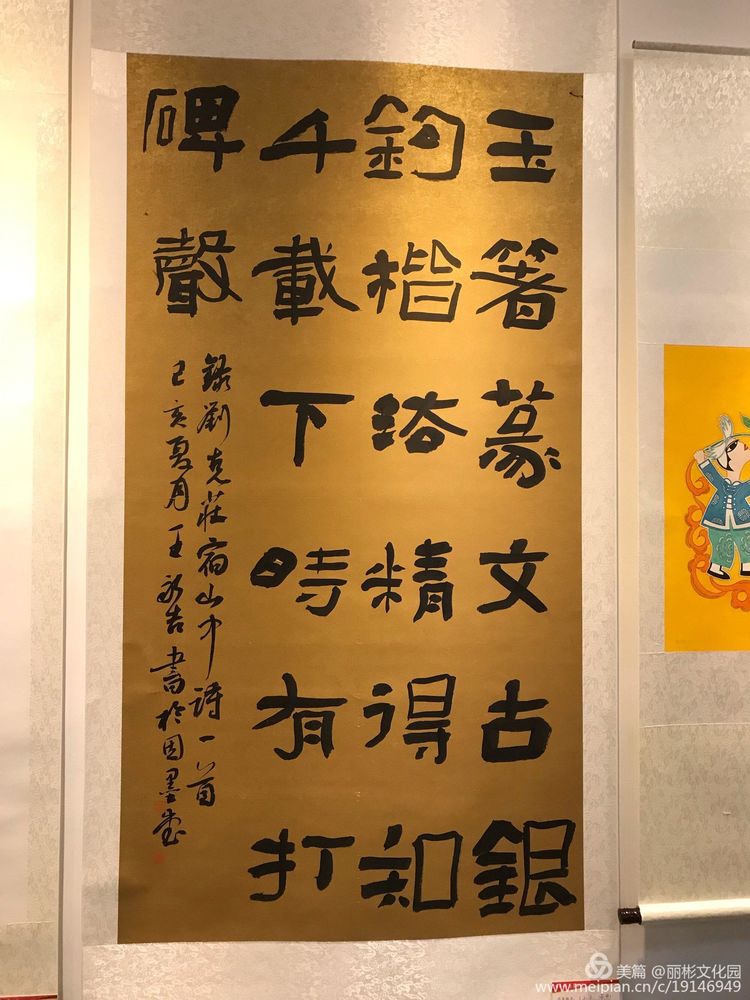 玉箸篆文古銀
鈎楷法精得知
千載下時有打
碑聲
錄劉克莊宿山中詩一首
己亥夏月王永吉書於固墨堂
美篇 @丽彬文化园
www.meipian.cn/c/19146949